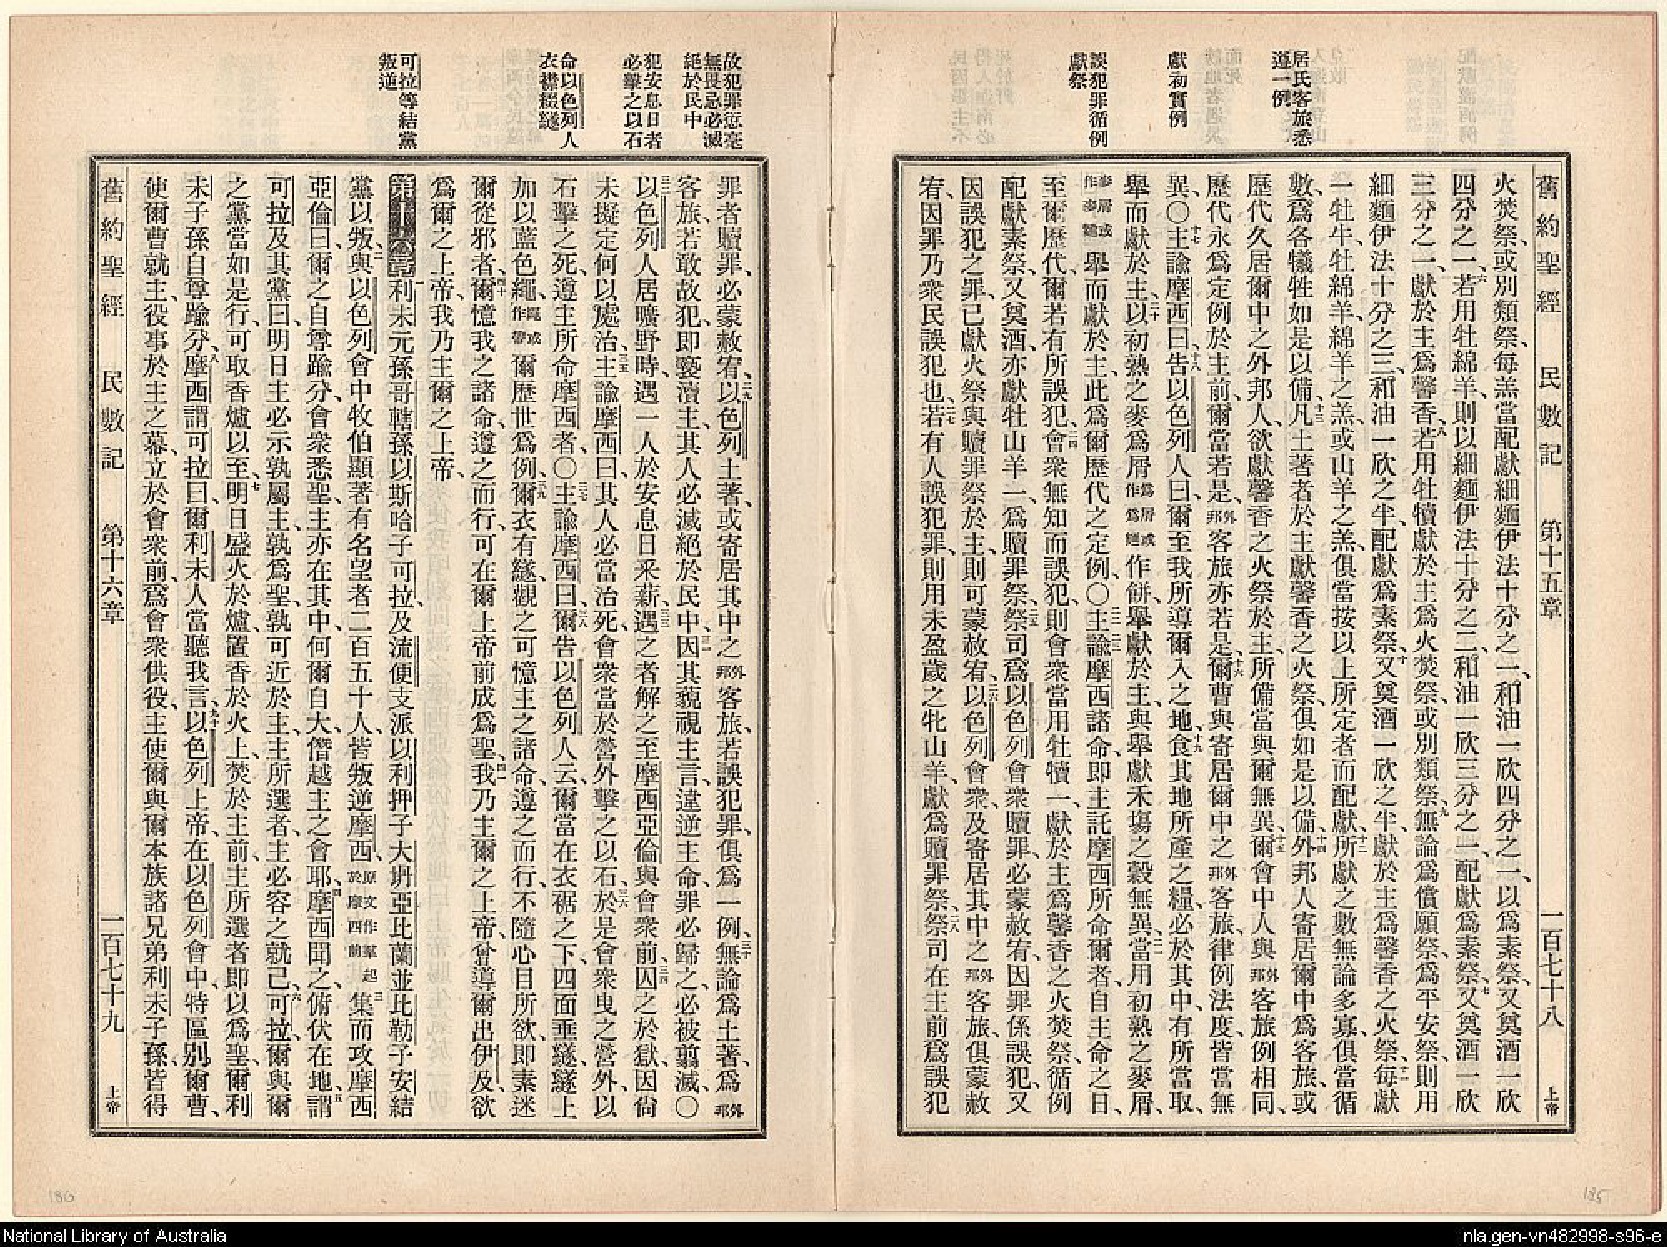 舊約聖經 民數記 第十五章 一百七十八 上帝
居民客旅悉
遵一例
獻初實例
誤犯罪循例
獻祭
火焚祭、或別類祭、每羔當配獻細麵伊法十分之一、和油一欣四分之一、以爲素祭、又奠酒一欣
四分之一、若用牡綿羊、則以細麵伊法十分之二、和油一欣三分之一、配獻爲素祭、又奠酒一欣
三分之一、獻於主爲馨香、若用牡犢獻於主爲火焚祭、或別類祭、無論爲償願祭、爲平安祭、則用
細麵伊法十分之三、和油一欣之半、配獻爲素祭、又奠酒一欣之半、獻於主爲馨香之火祭、每獻
一牡牛、牡綿羊、綿羊之羔、或山羊之羔、俱當按以上所定者而配獻、所獻之數無論多寡、俱當循
數爲各犧牲如是以備、凡土著者於主獻馨香之火祭、俱如是以備、外邦人寄居爾中爲客旅、或
歷代久居爾中之外邦人、欲獻馨香之火祭於主、所備當與爾無異、爾會中人與外邦客旅例相同、
歷代永爲定例、於主前爾當若是、外邦客旅亦若是、爾曹與寄居爾中之外邦客旅、律例法度、皆當無
異、〇主諭摩西曰、告以色列人曰、爾至我所導爾入之地、食其地所產之糧、必於其中、有所當取、
舉而獻於主、以初熟之麥爲屑爲屑或作爲麵作餅、舉獻於主、與舉獻禾場之穀無異、當用初熟之麥屑、
麥屑或作麥麵舉而獻於主、此爲爾歷代之定例、〇主諭摩西諸命、卽主託摩西所命爾者、自主命之日、
至爾歷代、爾若有所誤犯、會衆無知而誤犯、則會衆當用牡犢一、獻於主爲馨香之火焚祭、循例
配獻素祭、又奠酒、亦獻牡山羊一、爲贖罪祭、祭司爲以色列會衆贖罪、必蒙赦宥、因罪係誤犯、又
因誤犯之罪、已獻火祭與贖罪祭於主、則可蒙赦宥、以色列會衆、及寄居其中之外邦客旅、俱蒙赦
宥、因罪乃衆民誤犯也、若有人誤犯罪、則用未盈歲之牝山羊、獻爲贖罪祭、祭司在主前爲誤犯
故犯罪愆毫
無畏忌必滅
絕於民中
犯安息日者
必擊之以石
命以色列人
衣襟綴繸
可拉等結黨
叛逆
罪者贖罪、必蒙赦宥、以色列土著、或寄居其中之外邦客旅、若誤犯罪、俱爲一例、無論爲土著、爲外邦
客旅、若敢故犯、卽褻瀆主、其人必滅絕於民中、因其藐視主言、違逆主命、罪必歸之、必被翦滅、〇
以色列人居曠野時、遇一人於安息日釆薪、遇之者解之至摩西亞倫與會衆前、囚之於獄、因尙
未擬定何以處治、主諭摩西曰、其人必當治死、會衆當於營外擊之以石、於是會衆曳之營外、以
石擊之死、遵主所命摩西者、〇主諭摩西曰、爾告以色列人云、爾當在衣裾之下、四面垂繸、繸上
加以藍色繩、繩或作帶爾歷世爲例、爾衣有繸、觀之可憶主之諸命、遵之而行、不隨心目所欲、卽素迷
爾從邪者、爾憶我之諸命、遵之而行、可在爾上帝前成爲聖、我乃主爾之上帝、曾導爾出伊及、欲
爲爾之上帝、我乃主爾之上帝、
第十六章利未元孫哥轄孫以斯哈子可拉、及流便支派以利押子大坍亞比蘭、並比勒子安、結
黨以叛、與以色列會中牧伯顯著有名望者二百五十人、皆叛逆摩西、原文作羣起於摩西前集而攻摩西
亞倫曰、爾之自尊踰分、會衆悉聖、主亦在其中、何爾自大、僭越主之會耶、摩西聞之、俯伏在地、謂
可拉及其黨曰、明日主必示孰屬主、孰爲聖、孰可近於主、主所選者、主必容之就己、可拉、爾與爾
之黨當如是行、可取香爐以至、明日盛火於爐、置香於火上、焚於主前、主所選者卽以爲聖、爾利
未子孫自尊踰分、摩西謂可拉曰、爾利未人當聽我言、以色列上帝在以色列會中、特區別爾曹、
使爾曹就主、役事於主之幕、立於會衆前、爲會衆供役、主使爾與爾本族諸兄弟利未子孫、皆得
舊約聖經 民數記 第十六章 一百七十九 上帝
186
185
National Library of Australia
nla.gen-vn482998-s96-e